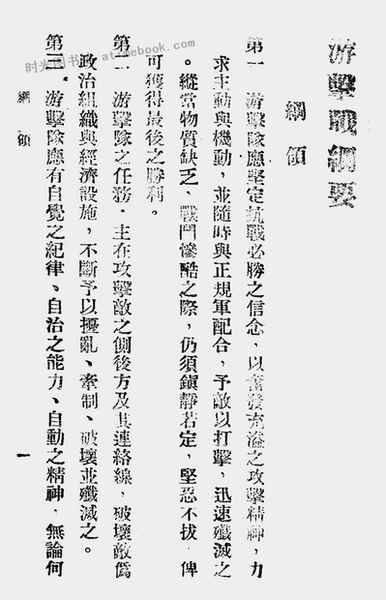 游擊戰綱要
綱領
第一　游擊隊應堅定抗戰必勝之信念，以奮發充溢之攻擊精神，力
求主動與機動，並隨時與正規軍配合，予敵以打擊，迅速殲滅之
。縱當物質缺乏、戰鬥慘酷之際，仍須鎭靜若定，堅忍不拔，俾
可獲得最後之勝利。
第二　游擊隊之任務，主在攻擊敵之側後方及其連絡線，破壞敵僞
政治組織與經濟設施，不斷予以擾亂、牽制、破壞並殲滅之。
第三　游擊隊應有自覺之紀律、自治之能力、自動之精神，無論何
綱領
一
时光图书 atimebook.com